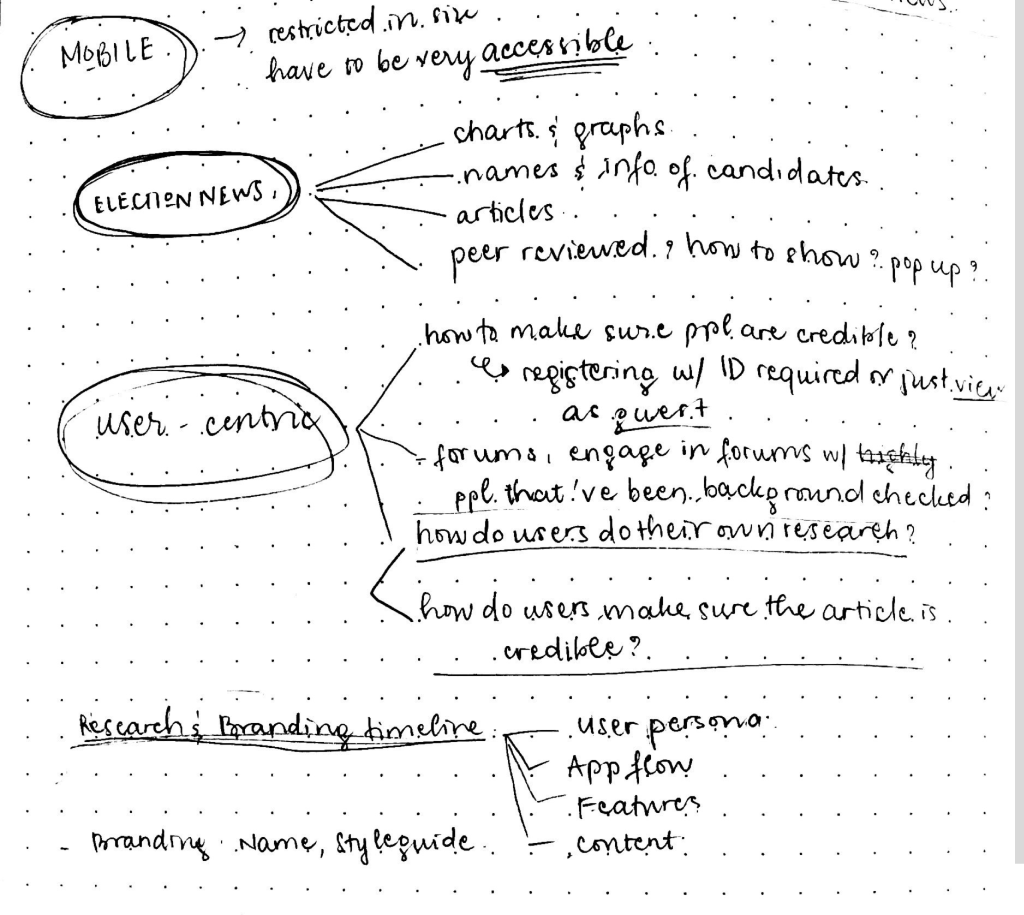 MOBILE → restricted in size
have to be very accessible
ELECTION NEWS
charts & graphs
names & info of candidates
articles
peer reviewed? how to show? pop up?
user-centric
how to make sure ppl are credible?
↳ registering w/ ID required or just view
as guest
- forums, engage in forums w/ highly
ppl that've been background checked?
how do users do their own research?
how do users make sure the article is
credible?
Research & Branding timeline
user persona
App flow
Features
content
- Branding Name, Styleguide